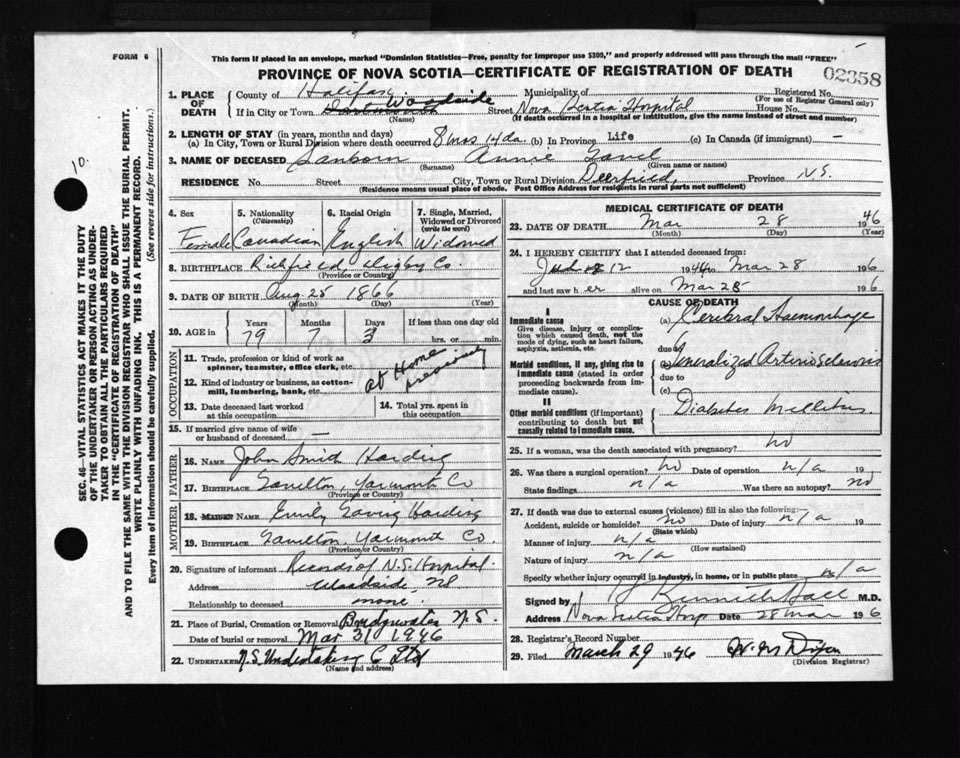 FORM 6
This form if placed in an envelope, marked "Dominion Statistics—Free, penalty for improper use $300," and properly addressed will pass through the mail "FREE"
PROVINCE OF NOVA SCOTIA—CERTIFICATE OF REGISTRATION OF DEATH
02358
1. PLACE OF DEATH
County of Halifax Municipality of Registered No.
(For use of Registrar General only)
If in City or Town Woodside Street Nova Scotia Hospital House No.
(Name) (If death occurred in a hospital or institution, give the name instead of street and number)
2. LENGTH OF STAY (in years, months and days)
(a) In City, Town or Rural Division where death occurred 8 mos 14 da. (b) In Province Life (c) In Canada (if immigrant) —
3. NAME OF DECEASED Sanborn Annie Gavel
(Surname) (Given name or names)
RESIDENCE No. Street City, Town or Rural Division Deerfield, Province N.S.
(Residence means usual place of abode. Post Office Address for residents in rural parts not sufficient)
4. Sex
Female
5. Nationality
(Citizenship)
Canadian
6. Racial Origin
English
7. Single, Married, Widowed or Divorced
(write the word)
Widowed
8. BIRTHPLACE Richfield, Digby Co.
(Province or Country)
9. DATE OF BIRTH Aug 25 1866
(Month) (Day) (Year)
10. AGE in
Years Months Days If less than one day old
79 7 3 hrs. or min.
OCCUPATION
11. Trade, profession or kind of work as spinner, teamster, office clerk, etc.
At Home previously
12. Kind of industry or business, as cotton-mill, lumbering, bank, etc.
13. Date deceased last worked at this occupation
14. Total yrs. spent in this occupation
15. If married give name of wife or husband of deceased —
FATHER
16. NAME John Smith Harding
17. BIRTHPLACE Yarmouth Co
(Province or Country)
MOTHER
18. MAIDEN NAME Emily Harding
19. BIRTHPLACE Yarmouth Co.
(Province or Country)
20. Signature of informant Records of N.S. Hospital.
Address Woodside, NS
Relationship to deceased none.
21. Place of Burial, Cremation or Removal Bridgewater N.S.
Date of burial or removal Mar 31 1946
22. UNDERTAKER N.S. Undertaking C Ltd
(Name and address)
MEDICAL CERTIFICATE OF DEATH
23. DATE OF DEATH Mar 28 1946
(Month) (Day) (Year)
24. I HEREBY CERTIFY that I attended deceased from:
12 194 to Mar 28 1946
and last saw h er alive on Mar 28 1946
CAUSE OF DEATH
I
Immediate cause (a) Cerebral Haemorrhage
Give disease, injury or complication which caused death, not the mode of dying, such as heart failure, asphyxia, asthenia, etc.
due to
Morbid conditions, if any, giving rise to immediate cause (stated in order proceeding backwards from immediate cause).
(b) Generalized Arteriosclerosis
due to
(c)
II
Other morbid conditions (if important) contributing to death but not causally related to immediate cause.
Diabetes Mellitus.
25. If a woman, was the death associated with pregnancy? no
26. Was there a surgical operation? no Date of operation n/a 19
State findings n/a Was there an autopsy? no
27. If death was due to external causes (violence) fill in also the following:
Accident, suicide or homicide? no Date of injury n/a 19
(State which)
Manner of injury n/a
(How sustained)
Nature of injury n/a
Specify whether injury occurred in industry, in home, or in public place n/a
Signed by Kenneth Hall M.D.
Address Nova Scotia Hosp Date 28 Mar 1946
28. Registrar's Record Number
29. Filed March 29 1946 W. M Dixon
(Division Registrar)
SEC. 46—VITAL STATISTICS ACT MAKES IT THE DUTY
OF THE UNDERTAKER OR PERSON ACTING AS UNDER-
TAKER TO OBTAIN ALL THE PARTICULARS REQUIRED
IN THE "CERTIFICATE OF REGISTRATION OF DEATH"
AND TO FILE THE SAME WITH THE DIVISION REGISTRAR WHO SHALL ISSUE THE BURIAL PERMIT.
WRITE PLAINLY WITH UNFADING INK. THIS IS A PERMANENT RECORD.
Every item of information should be carefully supplied. (See reverse side for instructions.)
10.